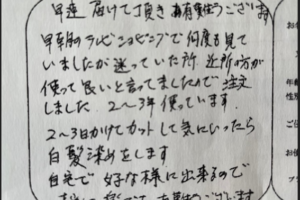 早速 届けて頂き 有難うございます
早朝のテレビショッピングで何度も見て
いましたが 迷っていた所 近所の方が
使って良いと言ってましたので 注文
しました 2〜3年使っています.
2〜3日かけてカットして気にいったら
白髪染めをします
自宅で 好な様に出来るので
ございます